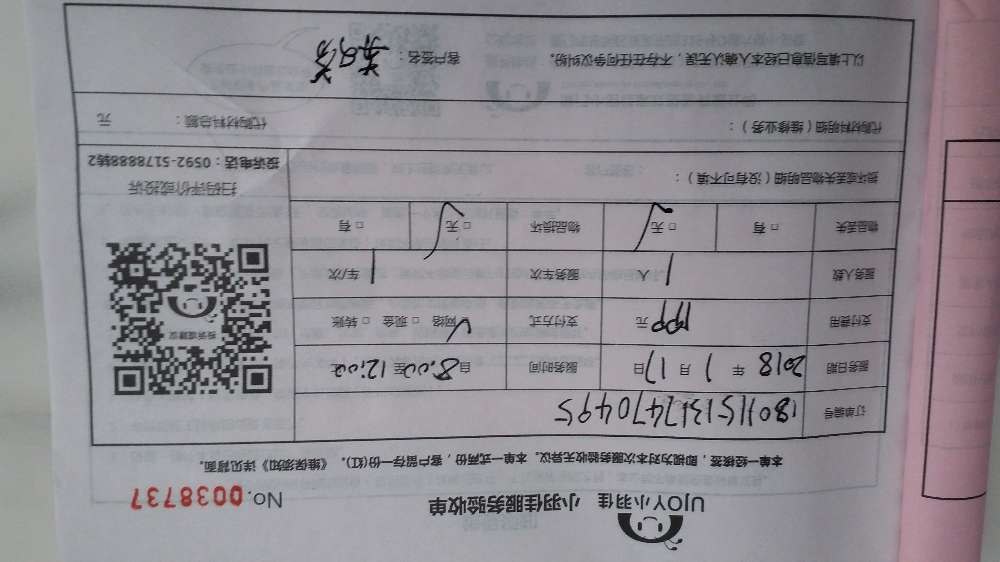 UJOY小羽佳 小羽佳服务验收单
No. 0038737
本单一经核签，即视为对本次服务验收无异议。本单一式两份，客户留存一份(红)。《维保须知》详见背面。
订单编号 180115131747470495
服务日期 2018 年 1 月 17 日 服务时间 自 8:00 至 12:00 止
支付费用 元 支付方式 □ 网络 □ 现金 □ 转账
服务人数 1 人 服务车次 1 车/次
物品丢失 □ 有 □ 无 物品损坏 □ 无 □ 有
损坏或丢失物品明细（没有可不填）：
投诉或建议
扫码评价或投诉
投诉电话：0592-5178888转2
代购材料明细（维修业务）： 代购材料总额： 元
以上填写信息已经本人确认无误，不存在任何争议纠纷。 客户签名：